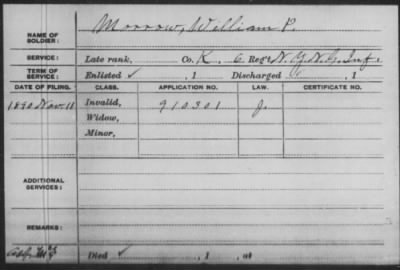 NAME OF SOLDIER: Morrow, William P.
SERVICE: Late rank, Co. K. 6 Reg't N.Y.N.G. Inf.
TERM OF SERVICE: Enlisted ✓ , 1 Discharged , 1
DATE OF FILING. CLASS. APPLICATION NO. LAW. CERTIFICATE NO.
1890 Nov. 11 Invalid, 910301 J.
Widow,
Minor,
ADDITIONAL SERVICES:
REMARKS:
Died ✓ , 1 , at